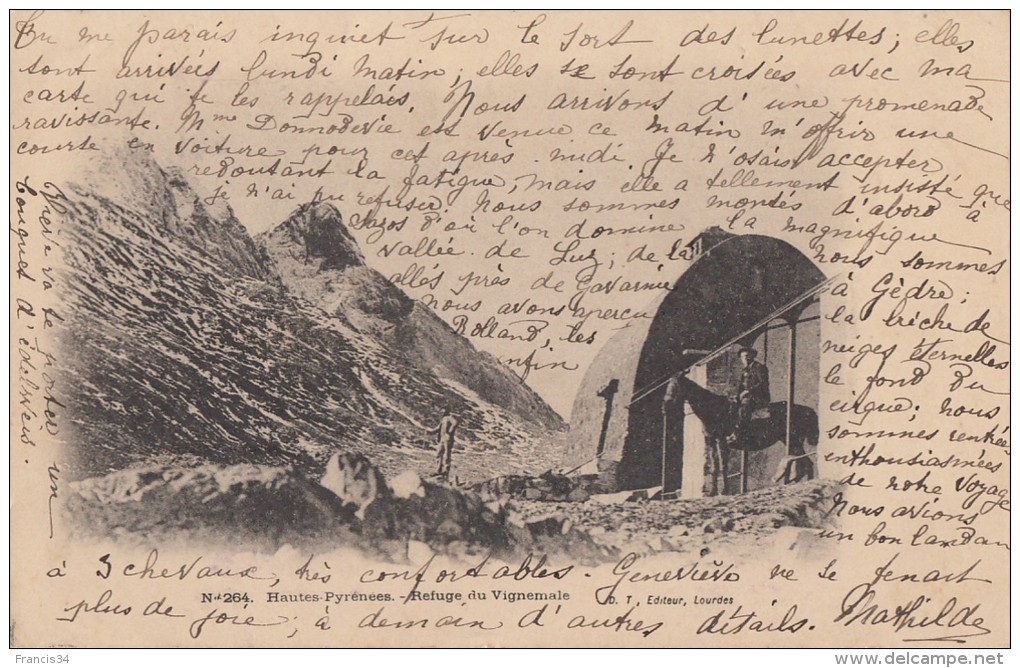 Tu me parais inquiet sur le sort des lunettes ; elles
sont arrivées lundi matin ; elles se sont croisées avec ma
carte qui te les rappelais. Nous arrivons d'une promenade
ravissante. Mme Donnodevie est venue ce matin m'offrir une
course en voiture pour cet après-midi. Je n'osais accepter
redoutant la fatigue, mais elle a tellement insisté que
je n'ai pu refuser. Nous sommes montés d'abord à
Sazos d'où l'on domine la magnifique
vallée de Luz ; de là nous sommes
allés près de Gavarnie à Gèdre ;
nous avons aperçu la brèche de
Rolland, les neiges éternelles
enfin le fond du
cirque ; nous
sommes rentrées
enthousiasmées
de notre voyage
Nous avions
un bon landau
à 3 chevaux, très confortables. Geneviève ne se tenait
plus de joie ; à demain d'autres détails. Mathilde
Pierre va te porter un
bouquet d'édelweis.
No 264. Hautes-Pyrénées. - Refuge du Vignemale
D. T., Editeur, Lourdes
Francis34
http://www.delcampe.net